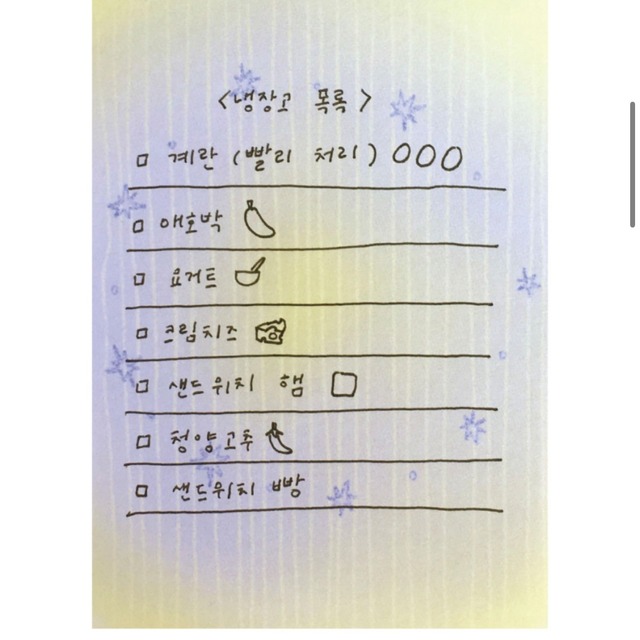 <냉장고 목록>
계란 (빨리 처리)
애호박
요거트
크림치즈
샌드위치 햄
청양고추
샌드위치 빵